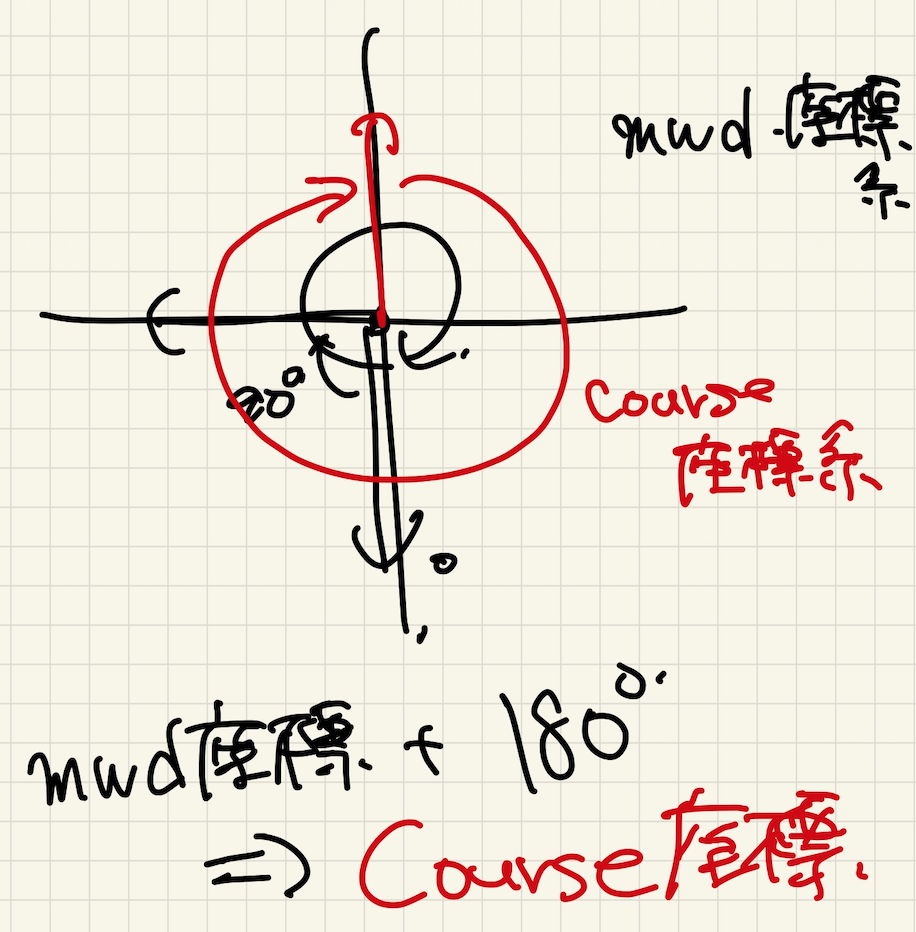 mwd座標
系
90°
course
座標系
0
mwd座標 + 180°
⇒ Course座標